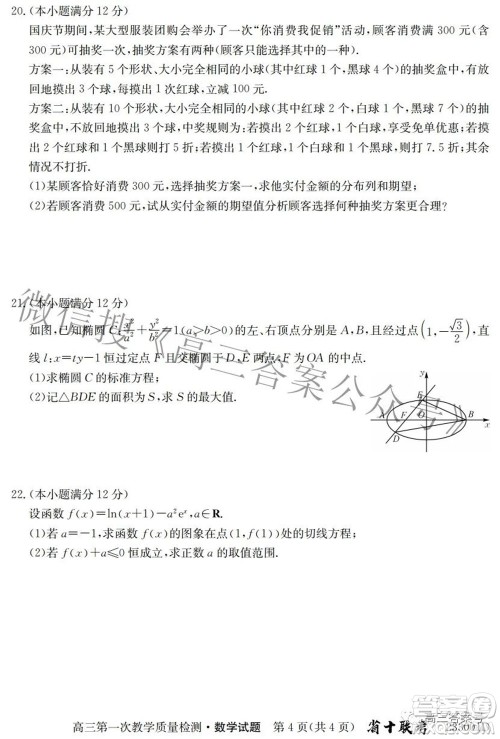 20.(本小题满分12分)
国庆节期间,某大型服装团购会举办了一次“你消费我促销”活动,顾客消费满300元(含
300元)可抽奖一次,抽奖方案有两种(顾客只能选择其中的一种).
方案一:从装有5个形状、大小完全相同的小球(其中红球1个,黑球4个)的抽奖盒中,有放
回地摸出3个球,每摸出1次红球,立减100元.
方案二:从装有10个形状,大小完全相同的小球(其中红球2个,白球1个,黑球7个)的抽
奖盒中,不放回地摸出3个球,中奖规则为:若摸出2个红球,1个白球,享受免单优惠;若摸
出2个红球和1个黑球则打5折;若摸出1个红球,1个白球和1个黑球,则打7.5折;其余
情况不打折.
(1)某顾客恰好消费300元,选择抽奖方案一,求他实付金额的分布列和期望;
(2)若顾客消费500元,试从实付金额的期望值分析顾客选择何种抽奖方案更合理?
21.(本小题满分12分)
如图,已知椭圆C:x²/a²+y²/b²=1(a>b>0)的左、右顶点分别是A,B,且经过点(1,-√3/2),直
线l:x=ty-1恒过定点F且交椭圆于D,E两点,F为OA的中点.
(1)求椭圆C的标准方程;
(2)记△BDE的面积为S,求S的最大值.
y
E
A F O B x
D
22.(本小题满分12分)
设函数f(x)=ln(x+1)-a²eˣ,a∈R.
(1)若a=-1,求函数f(x)的图象在点(1,f(1))处的切线方程;
(2)若f(x)+a≤0恒成立,求正数a的取值范围.
微信搜《高三答案公众号》
高三第一次教学质量检测·数学试题 第4页(共4页) 省十联考